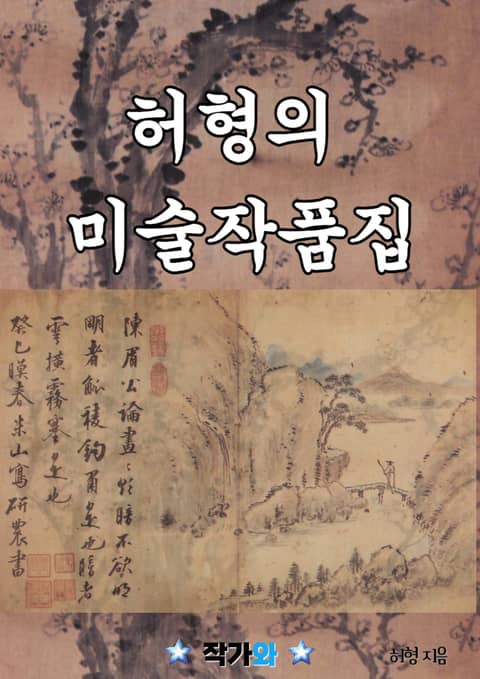 허형의
미술작품집
陳眉公論畫〻欲暗不欲明
明者觚稜鉤角是也暗者
雲橫霧塞是也
癸巳暮春米山寫研農書
작가와
허형 지음